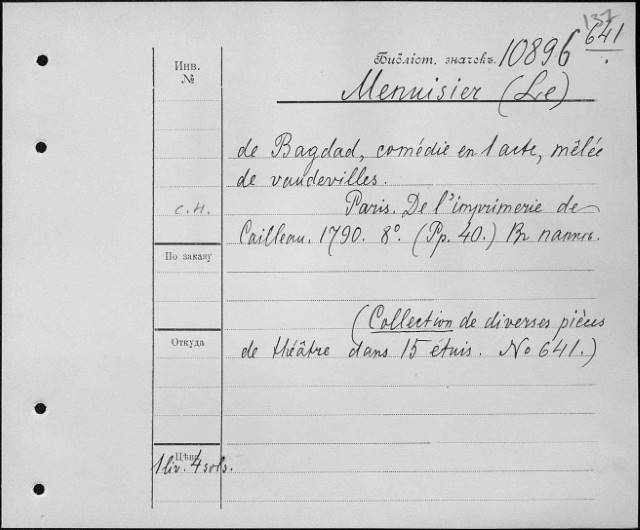 137
641
Инв.
№
Библіот. значокъ. 10896
Menuisier (Le)
de Bagdad, comédie en 1 acte, mêlée
de vaudevilles.
с.н.
Paris. De l'imprimerie de
Cailleau. 1790. 8°. (Pp. 40.) Въ папкѣ.
По заказу
(Collection de diverses pièces
Откуда
de théâtre dans 15 étuis. No 641.)
Цѣна
1 liv. 4 sols.